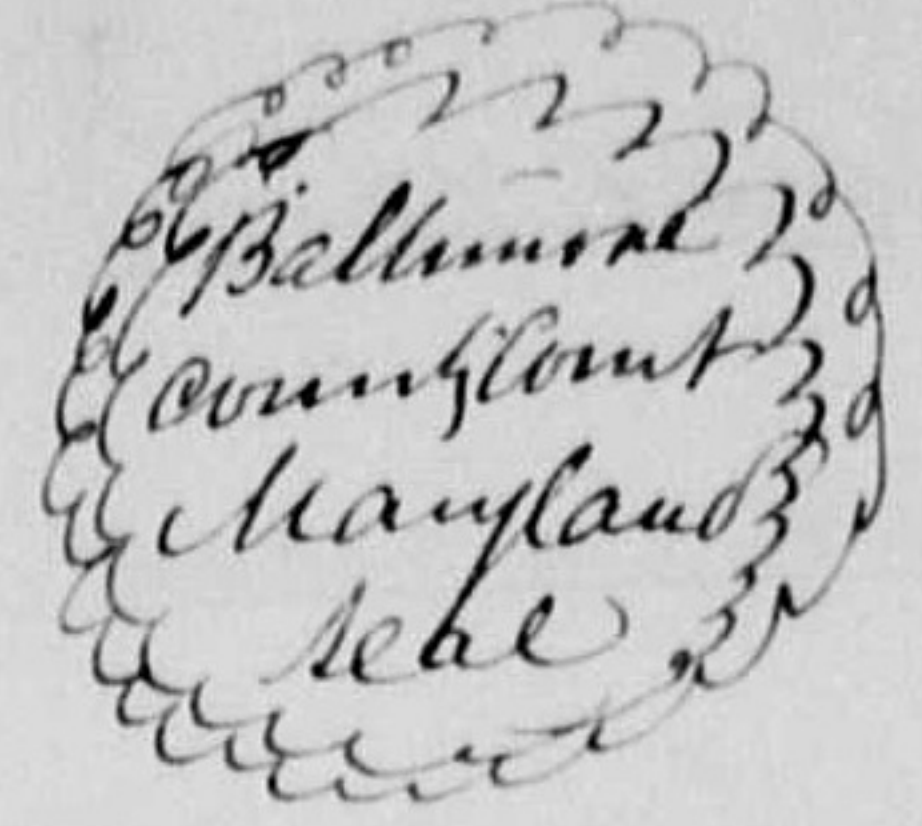 Baltimore
County Court
Maryland
Seal